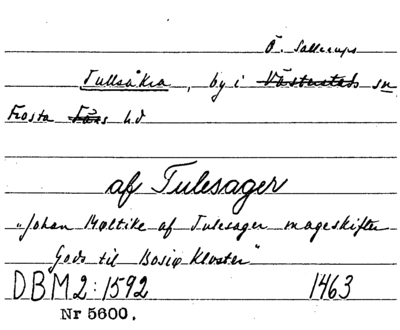 Ö. Sallerups
Tullsåkra, by i Västerstads sn,
Frosta Färs hd
af Tulesager
"Johan Mæltike af Tulesager mageskifter
Gods til Bosiø Kloster"
DBM 2:1592 1463
Nr 5600.